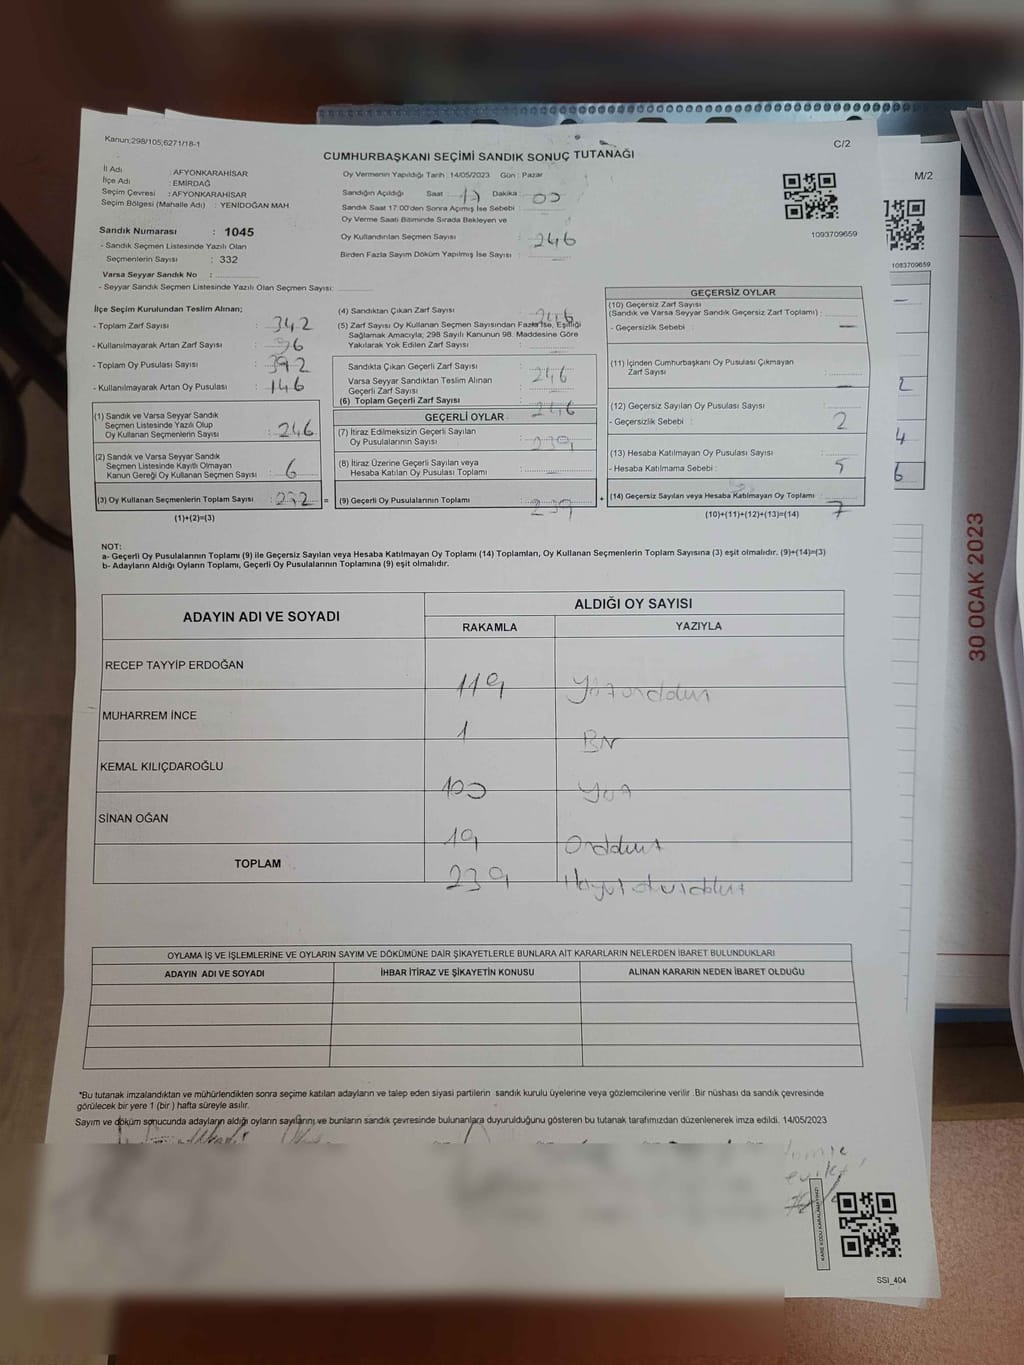 Kanun:298/105;6271/18-1
C/2
CUMHURBAŞKANI SEÇİMİ SANDIK SONUÇ TUTANAĞI
M/2
İl Adı : AFYONKARAHİSAR
İlçe Adı : EMİRDAĞ
Seçim Çevresi : AFYONKARAHİSAR
Seçim Bölgesi (Mahalle Adı) : YENİDOĞAN MAH.
Oy Vermenin Yapıldığı Tarih : 14/05/2023 Gün : Pazar
Sandığın Açıldığı Saat : 17 Dakika : 00
Sandık Saat 17:00'den Sonra Açılmış İse Sebebi :
Oy Verme Saati Bitiminde Sırada Bekleyen ve
Oy Kullandırılan Seçmen Sayısı : 246
Birden Fazla Sayım Döküm Yapılmış İse Sayısı :
1093709659
1093709659
Sandık Numarası : 1045
- Sandık Seçmen Listesinde Yazılı Olan
Seçmenlerin Sayısı : 332
Varsa Seyyar Sandık No :
- Seyyar Sandık Seçmen Listesinde Yazılı Olan Seçmen Sayısı:
İlçe Seçim Kurulundan Teslim Alınan;
- Toplam Zarf Sayısı : 342
- Kullanılmayarak Artan Zarf Sayısı : 96
- Toplam Oy Pusulası Sayısı : 392
- Kullanılmayarak Artan Oy Pusulası : 146
(1) Sandık ve Varsa Seyyar Sandık
Seçmen Listesinde Yazılı Olup
Oy Kullanan Seçmenlerin Sayısı : 246
(2) Sandık ve Varsa Seyyar Sandık
Seçmen Listesinde Kayıtlı Olmayan
Kanun Gereği Oy Kullanan Seçmen Sayısı : 6
(3) Oy Kullanan Seçmenlerin Toplam Sayısı :
(1)+(2)=(3)
(4) Sandıktan Çıkan Zarf Sayısı : 246
(5) Zarf Sayısı Oy Kullanan Seçmen Sayısından Fazla İse, Eşitliği
Sağlamak Amacıyla; 298 Sayılı Kanunun 98. Maddesine Göre
Yakılarak Yok Edilen Zarf Sayısı :
Sandıkta Çıkan Geçerli Zarf Sayısı : 246
Varsa Seyyar Sandıktan Teslim Alınan
Geçerli Zarf Sayısı :
(6) Toplam Geçerli Zarf Sayısı : 246
GEÇERLİ OYLAR
(7) İtiraz Edilmeksizin Geçerli Sayılan
Oy Pusulalarının Sayısı : 239
(8) İtiraz Üzerine Geçerli Sayılan veya
Hesaba Katılan Oy Pusulası Toplamı :
= (9) Geçerli Oy Pusulalarının Toplamı : 239
GEÇERSİZ OYLAR
(10) Geçersiz Zarf Sayısı
(Sandık ve Varsa Seyyar Sandık Geçersiz Zarf Toplamı) :
- Geçersizlik Sebebi : —
(11) İçinden Cumhurbaşkanı Oy Pusulası Çıkmayan
Zarf Sayısı : —
(12) Geçersiz Sayılan Oy Pusulası Sayısı :
- Geçersizlik Sebebi : 2
(13) Hesaba Katılmayan Oy Pusulası Sayısı :
- Hesaba Katılmama Sebebi : 5
+ (14) Geçersiz Sayılan veya Hesaba Katılmayan Oy Toplamı : 7
(10)+(11)+(12)+(13)=(14)
—
2
4
6
30 OCAK 2023
NOT:
a- Geçerli Oy Pusulalarının Toplamı (9) ile Geçersiz Sayılan veya Hesaba Katılmayan Oy Toplamı (14) Toplamları, Oy Kullanan Seçmenlerin Toplam Sayısına (3) eşit olmalıdır. (9)+(14)=(3)
b- Adayların Aldığı Oyların Toplamı, Geçerli Oy Pusulalarının Toplamına (9) eşit olmalıdır.
ADAYIN ADI VE SOYADI
ALDIĞI OY SAYISI
RAKAMLA YAZIYLA
RECEP TAYYİP ERDOĞAN
119 Yüzondokuz
MUHARREM İNCE
1 Bir
KEMAL KILIÇDAROĞLU
100 Yüz
SİNAN OĞAN
19 Ondokuz
TOPLAM
239
OYLAMA İŞ VE İŞLEMLERİNE VE OYLARIN SAYIM VE DÖKÜMÜNE DAİR ŞİKAYETLERLE BUNLARA AİT KARARLARIN NELERDEN İBARET BULUNDUKLARI
ADAYIN ADI VE SOYADI İHBAR İTİRAZ VE ŞİKAYETİN KONUSU ALINAN KARARIN NEDEN İBARET OLDUĞU
*Bu tutanak imzalandıktan ve mühürlendikten sonra seçime katılan adayların ve talep eden siyasi partilerin sandık kurulu üyelerine veya gözlemcilerine verilir. Bir nüshası da sandık çevresinde
görülecek bir yere 1 (bir ) hafta süreyle asılır.
Sayım ve döküm sonucunda adayların aldığı oyların sayılarını ve bunların sandık çevresinde bulunanlara duyurulduğunu gösteren bu tutanak tarafımızdan düzenlenerek imza edildi. 14/05/2023
KARE KODU KARALAMAYINIZ!
SSI_404